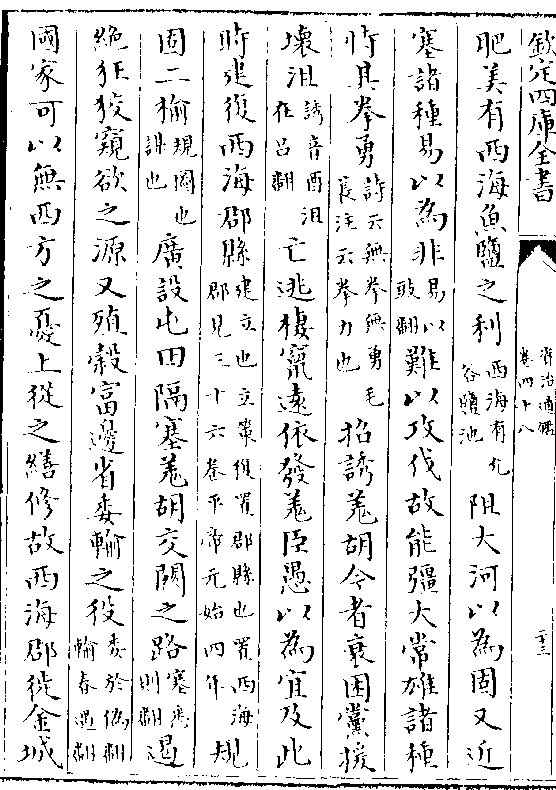 欽定四庫全書
資治通鑑
卷四十八
二十三
肥美有西海魚鹽之利西海有允谷鹽池阻大河以為固又近
塞諸種易以為非易以豉翻難以攻伐故能彊大常雄諸種
恃其拳勇詩云無拳無勇毛萇注云拳力也招誘羌胡今者衰困黨援
壞沮誘音酉沮在呂翻亡逃棲竄遠依發羌臣愚以為宜及此
時建復西海郡縣建立也立策復置郡縣也置西海郡見三十六卷平帝元始四年規
固二榆規圖也謀也廣設屯田隔塞羌胡交關之路塞悉則翻遏
絶狂狡窺欲之源又殖穀富邊省委輸之役委於偽翻輸春遇翻
國家可以無西方之憂上從之繕修故西海郡徙金城